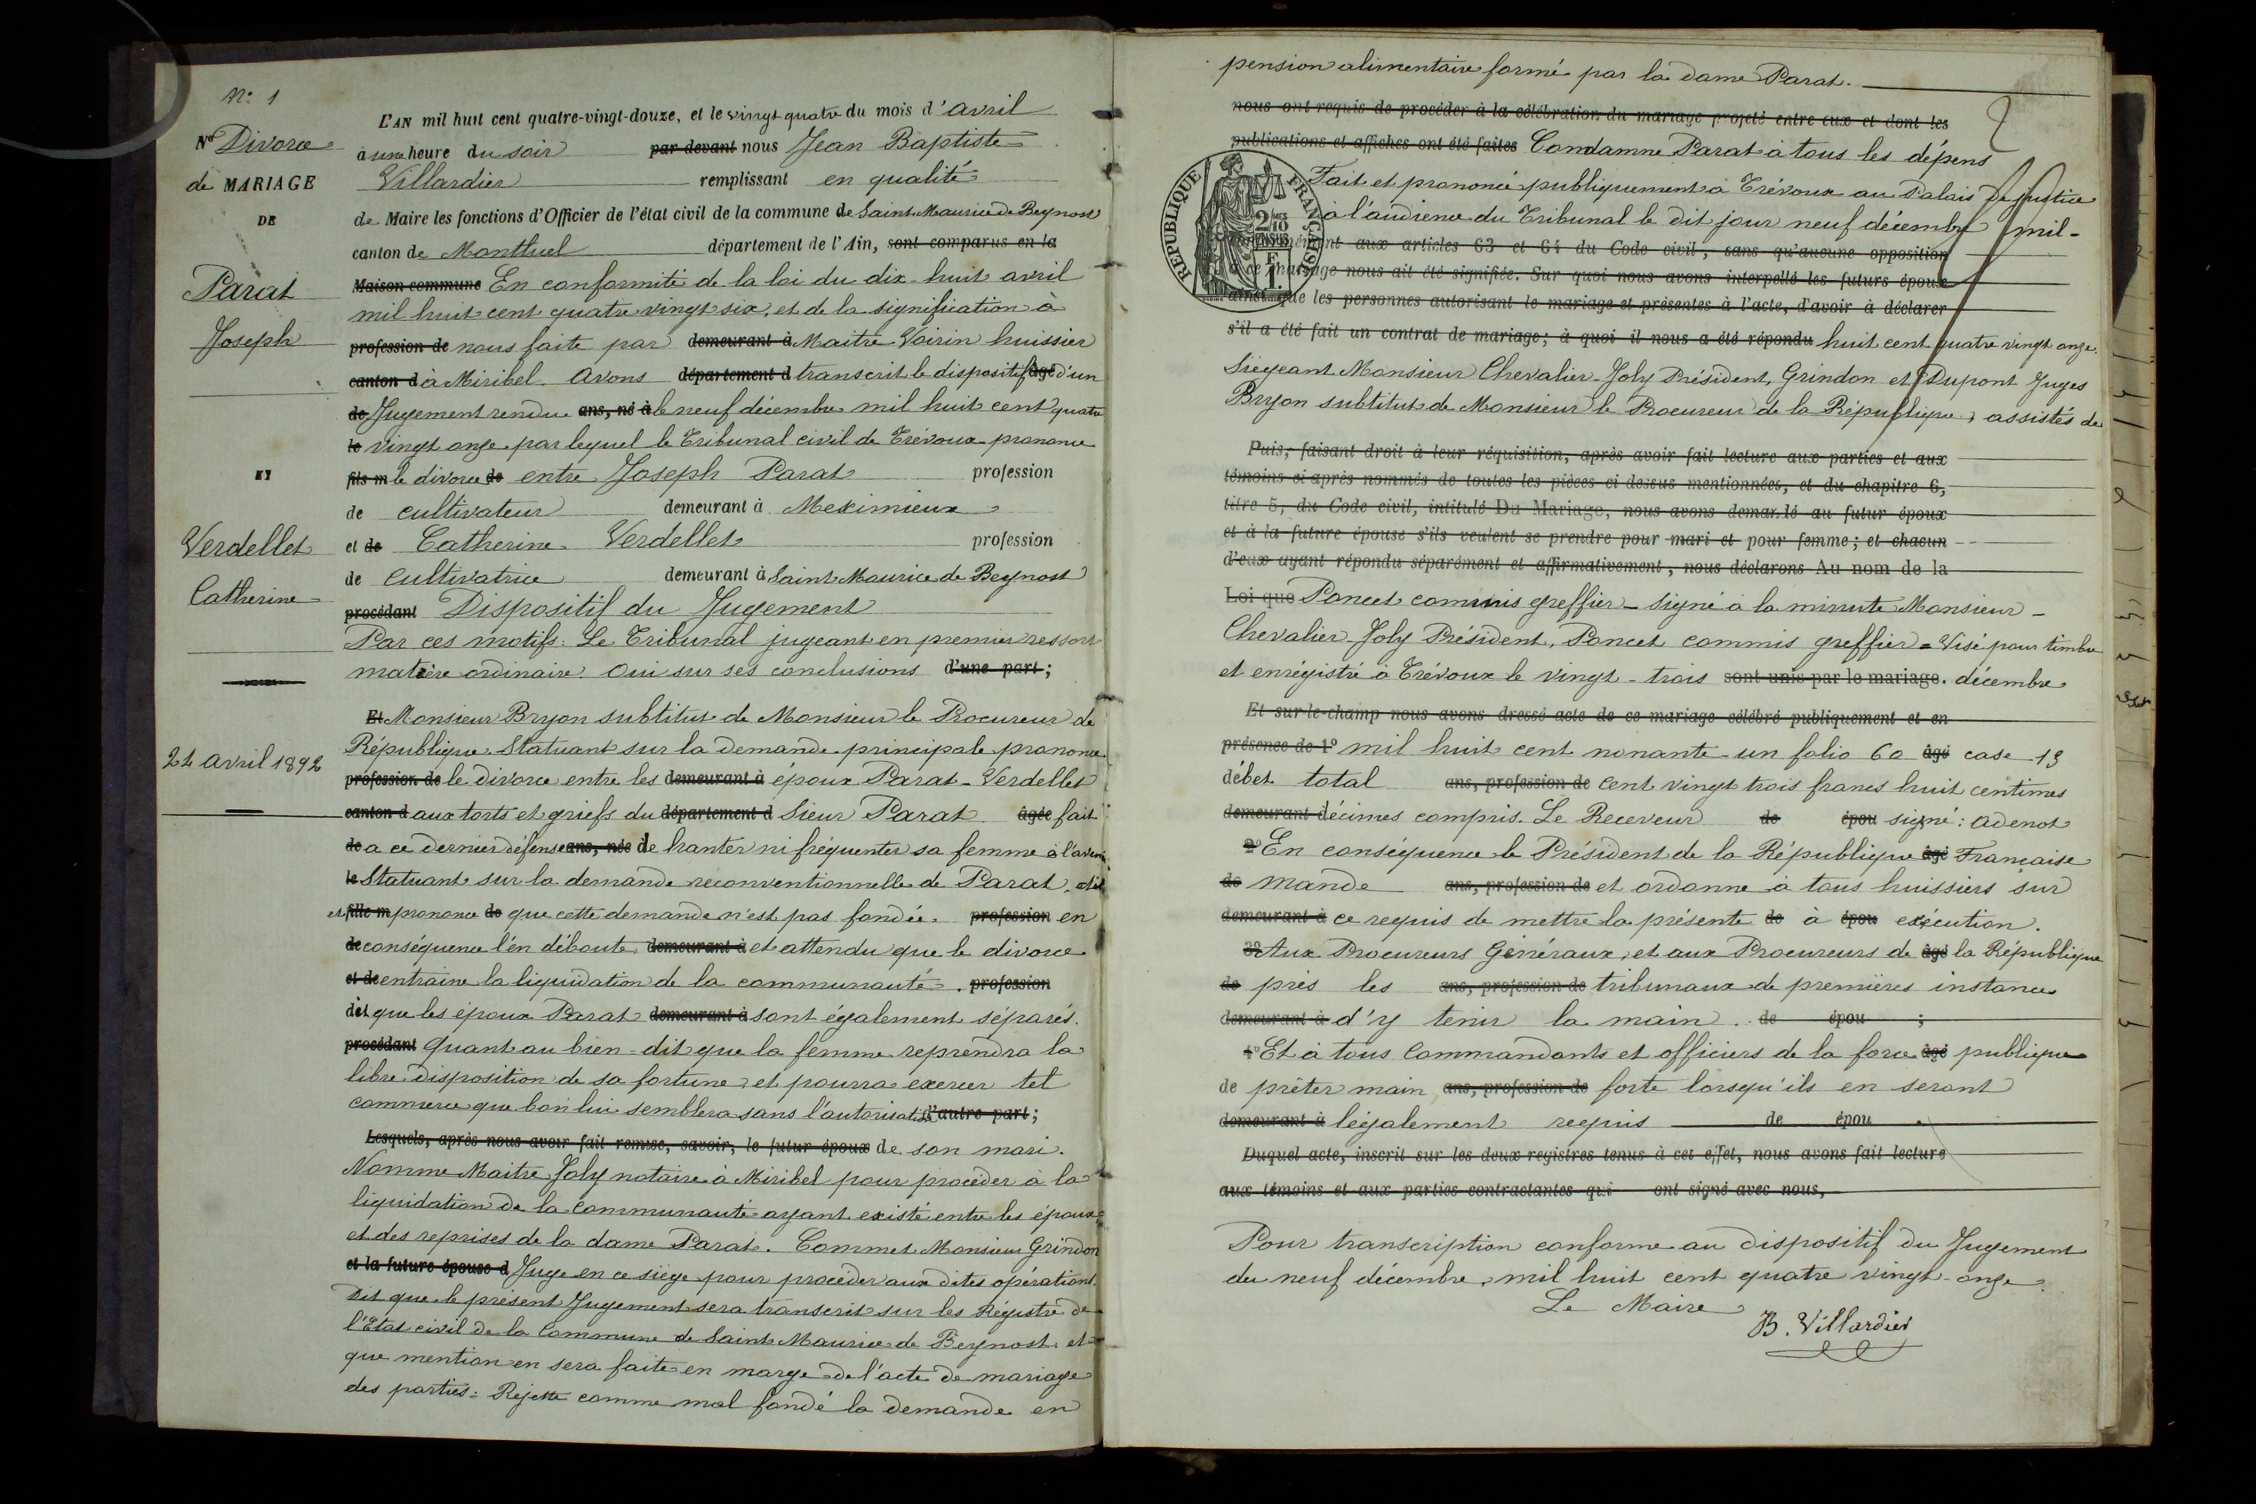 N° 1
N° Divorce
de MARIAGE
DE
Parat
Joseph
ET
Verdellet
Catherine
24 avril 1892
L'AN mil huit cent quatre-vingt-douze, et le vingt quatre du mois d'avril
à une heure du soir par devant nous Jean Baptiste
Villardier remplissant en qualité
de Maire les fonctions d'Officier de l'état civil de la commune de Saint Maurice de Beynost
canton de Montluel département de l'Ain, sont comparus en la
Maison commune En conformité de la loi du dix-huit avril
mil huit cent quatre vingt six, et de la signification à
profession de nous faite par demeurant à Maitre Voirin huissier
canton d à Miribel. Avons département d transcrit le dispositif âgé d'un
de Jugement rendu ans, né à le neuf décembre mil huit cent quatre
le vingt onze par lequel le Tribunal civil de Trévoux prononce
fils m le divorce de entre Joseph Parat profession
de cultivateur demeurant à Meximieux
et de Catherine Verdellet profession
de cultivatrice demeurant à Saint Maurice de Beynost
procédant Dispositif du Jugement
Par ces motifs: Le Tribunal jugeant en premier ressort
matière ordinaire. Oui sur ses conclusions d'une part;
Et Monsieur Bryon subtitut de Monsieur le Procureur de
République. Statuant sur la demande principale prononce
profession de le divorce entre les demeurant à époux Parat-Verdellet
canton d aux torts et griefs du département d Sieur Parat âgée fait
de a ce dernier défense ans, née de hanter ni fréquenter sa femme à l'avenir
le Statuant sur la demande reconventionnelle de Parat. dit
et fille m prononce de que cette demande n'est pas fondée. profession en
de conséquence l'én déboute, demeurant à et attendu que le divorce
et de entraine la liquidation de la communauté. profession
dit que les époux Parat demeurant à sont également séparés.
procédant Quant au bien-dit que la femme reprendra la
libre disposition de sa fortune, et pourra exercer tel
commerce que bon lui semblera sans l'autorisation d'autre part;
Lesquels, après nous avoir fait remise, savoir, le futur époux de son mari.
Nomme Maitre Joly notaire à Miribel pour procèder à la
liquidation de la communauté ayant existé entre les époux
et des reprises de la dame Parat. Commet Monsieur Grindon
et la future épouse d Juge en ce siège pour procèder aux dites opérations.
Dit que le présent Jugement sera transcrit sur les Régistre de
l'Etat civil de la Commune de Saint Maurice de Beynost, et
que mention en sera faite en marge de l'acte de mariage
des parties: Rejette comme mal fondé la demande en
pension alimentaire formé par la dame Parat.
nous ont requis de procéder à la célébration du mariage projeté entre eux et dont les
publications et affiches ont été faites Condamne Parat à tous les dépens
Fait et prononcé publiquement à Trévoux au Palais de justice
à l'audience du Tribunal le dit jour neuf décembre mil-
RÉPUBLIQUE FRANÇAISE
2/10 EN SUS
1 F.
aux articles 63 et 64 du Code civil, sans qu'aucune opposition
à ce mariage nous ait été signifiée. Sur quoi nous avons interpellé les futurs époux
ainsi que les personnes autorisant le mariage et présentes à l'acte, d'avoir à déclarer
s'il a été fait un contrat de mariage; à quoi il nous a été répondu huit cent quatre vingt onze.
Siégeant Monsieur Chevalier-Joly Président, Grindon et Dupont Juges
Bryon subtitut de Monsieur le Procureur de la République, assistés de
Puis, faisant droit à leur réquisition, après avoir fait lecture aux parties et aux
témoins ci-après nommés de toutes les pièces ci dessus mentionnées, et du chapitre 6,
titre 5, du Code civil, intitulé Du Mariage, nous avons demandé au futur époux
et à la future épouse s'ils veulent se prendre pour mari et pour femme; et chacun
d'eux ayant répondu séparément et affirmativement, nous déclarons Au nom de la
Loi que Poncet commis greffier - signé à la minute Monsieur -
Chevalier-Joly Président, Poncet commis greffier = Visé pour timbre
et enrégistré à Trévoux le vingt-trois sont unis par le mariage. décembre
Et sur-le-champ nous avons dressé acte de ce mariage célébré publiquement et en
présence de 1° mil huit cent nonante-un folio 60 âgé case 13
débet total ans, profession de cent vingt trois francs huit centimes
demeurant décimes compris. Le Receveur de épou signé: Adenot
2° En conséquence le Président de la République âgé Française
de mande ans, profession de et ordonne à tous huissiers sur
demeurant à ce requis de mettre la présente de à épou exécution.
3° Aux Procureurs Généraux, et aux Procureurs de âgé la République
de près les ans, profession de tribunaux de premières instances
demeurant à d'y tenir la main. de épou ;
4° Et à tous Commandants et officiers de la force âgé publique
de prêter main ans, profession de forte lorsqu'ils en seront
demeurant à légalement requis de épou .
Duquel acte, inscrit sur les deux registres tenus à cet effet, nous avons fait lecture
aux témoins et aux parties contractantes qui ont signé avec nous,
Pour transcription conforme au dispositif du Jugement
du neuf décembre, mil huit cent quatre vingt-onze.
Le Maire
B. Villardier